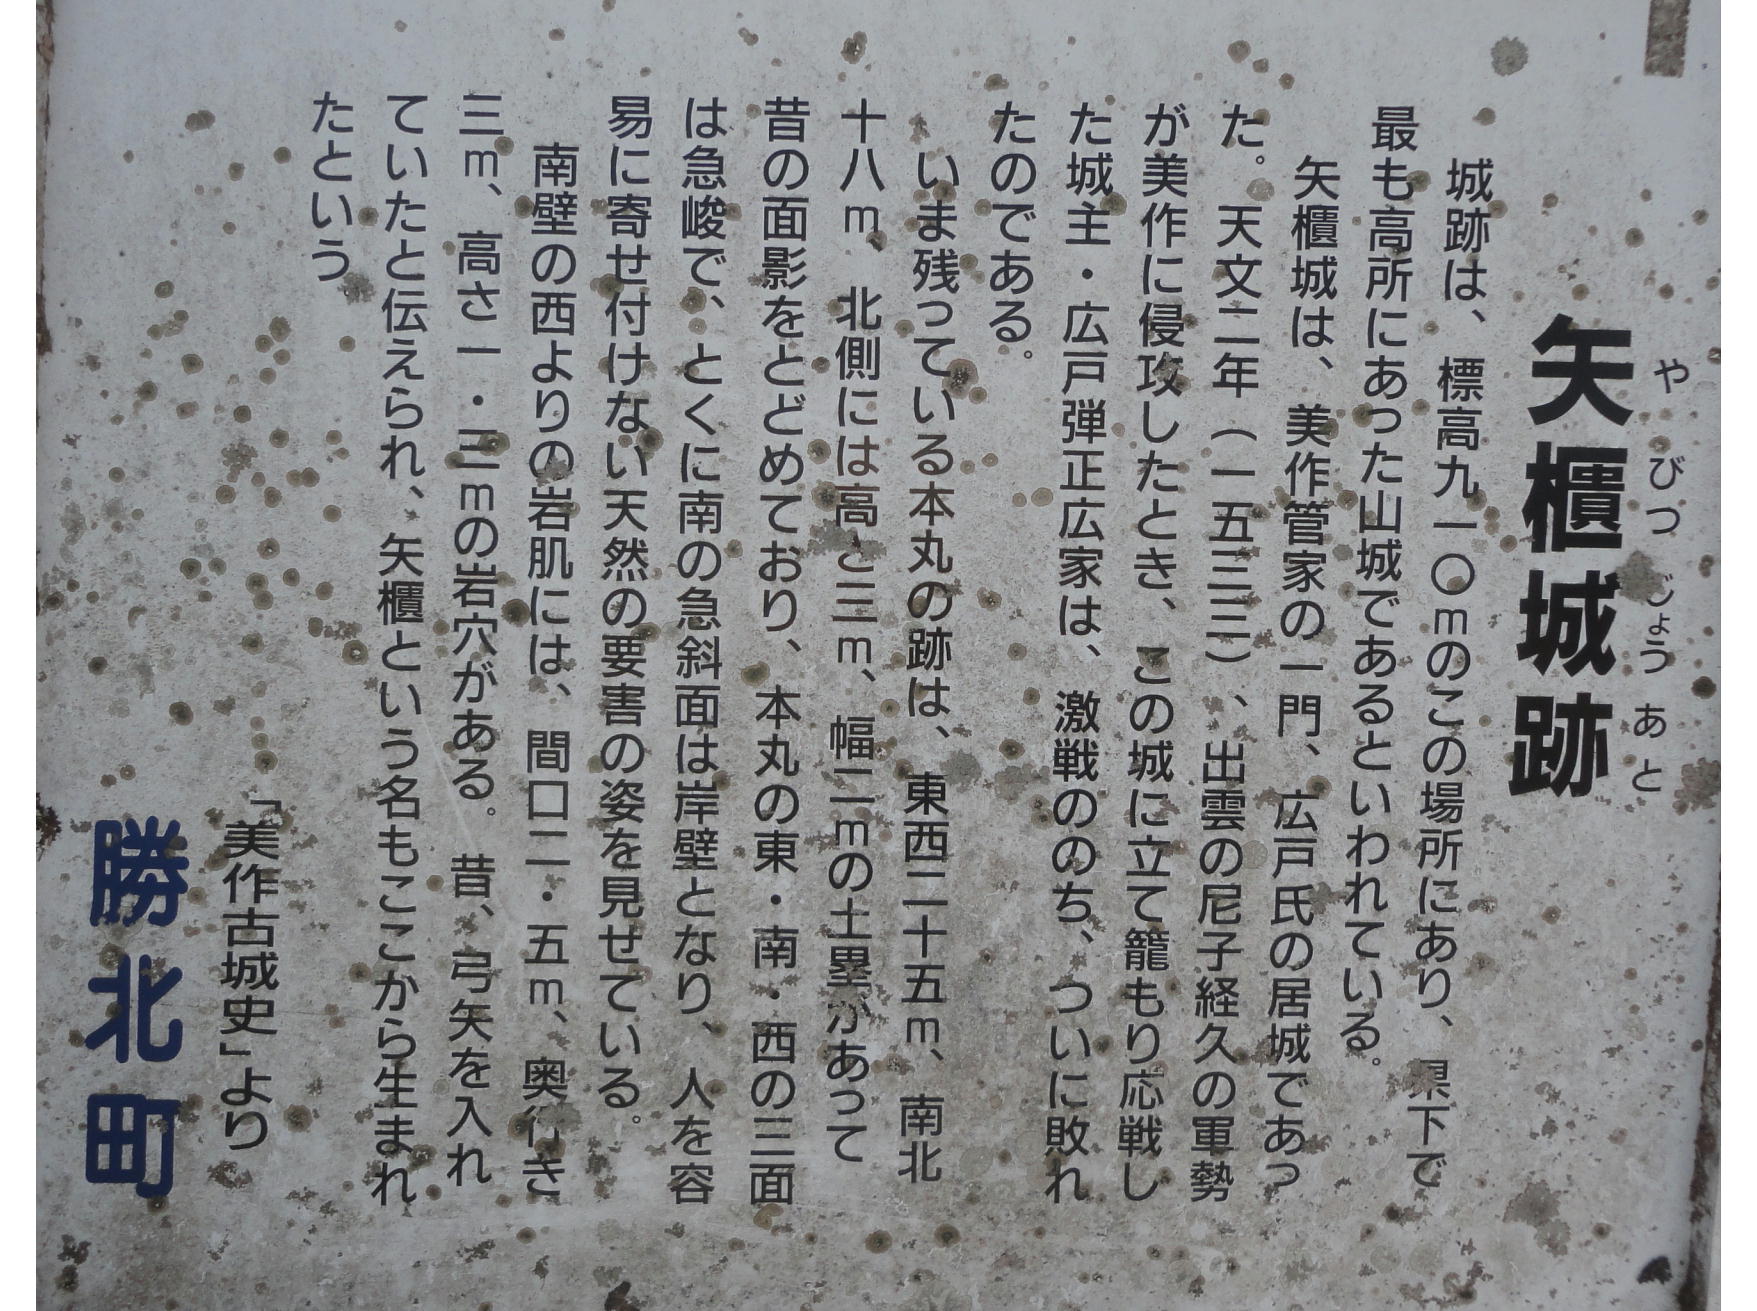 矢櫃城跡
やびつじょうあと
城跡は、標高九一〇mのこの場所にあり、県下で
最も高所にあった山城であるといわれている。
矢櫃城は、美作管家の一門、広戸氏の居城であっ
た。天文二年（一五三三）、出雲の尼子経久の軍勢
が美作に侵攻したとき、この城に立て籠もり応戦し
た城主・広戸弾正広家は、激戦ののち、ついに敗れ
たのである。
いま残っている本丸の跡は、東西二十五m、南北
十八m、北側には高さ三m、幅二mの土塁があって
昔の面影をとどめており、本丸の東・南・西の三面
は急峻で、とくに南の急斜面は岸壁となり、人を容
易に寄せ付けない天然の要害の姿を見せている。
南壁の西よりの岩肌には、間口二・五m、奥行き
三m、高さ一・三mの岩穴がある。昔、弓矢を入れ
ていたと伝えられ、矢櫃という名もここから生まれ
たという
「美作古城史」より
勝北町